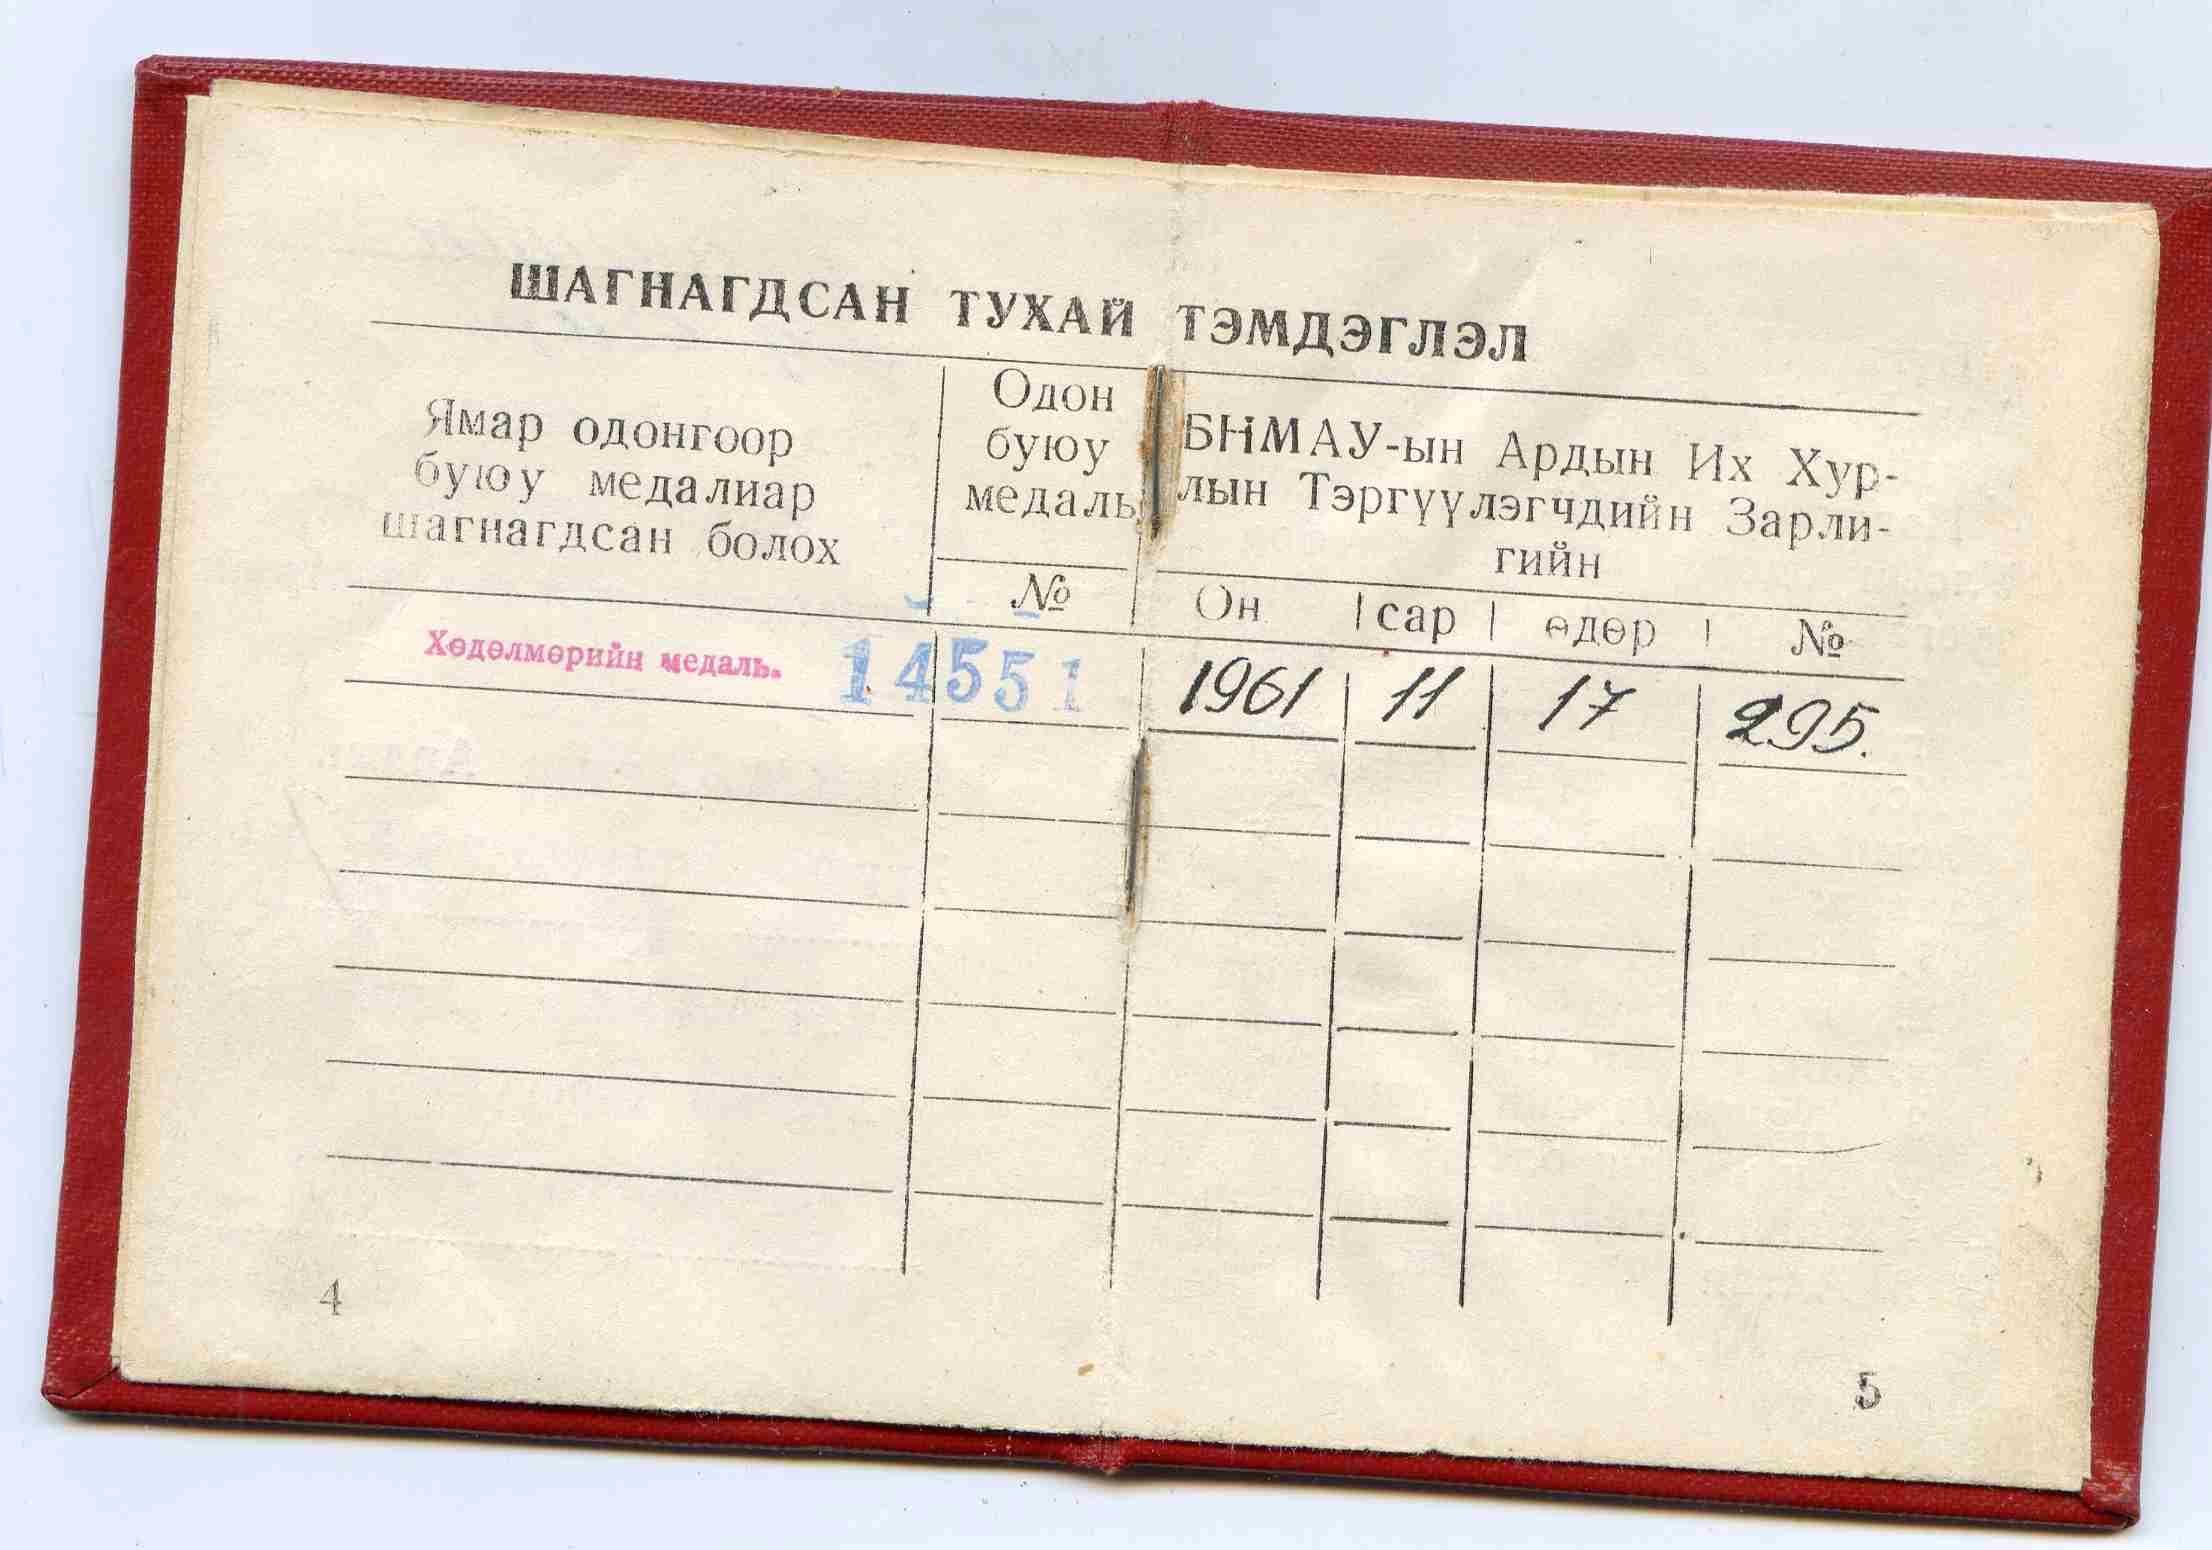 ШАГНАГДСАН ТУХАЙ ТЭМДЭГЛЭЛ
Ямар одонгоор
буюу медалиар
шагнагдсан болох
Одон
буюу
медаль
№
БНМАУ-ын Ардын Их Хур-
лын Тэргүүлэгчдийн Зарли-
гийн
Он сар өдөр №
Хөдөлмөрийн медаль. 14551 1961 11 17 295.
4
5